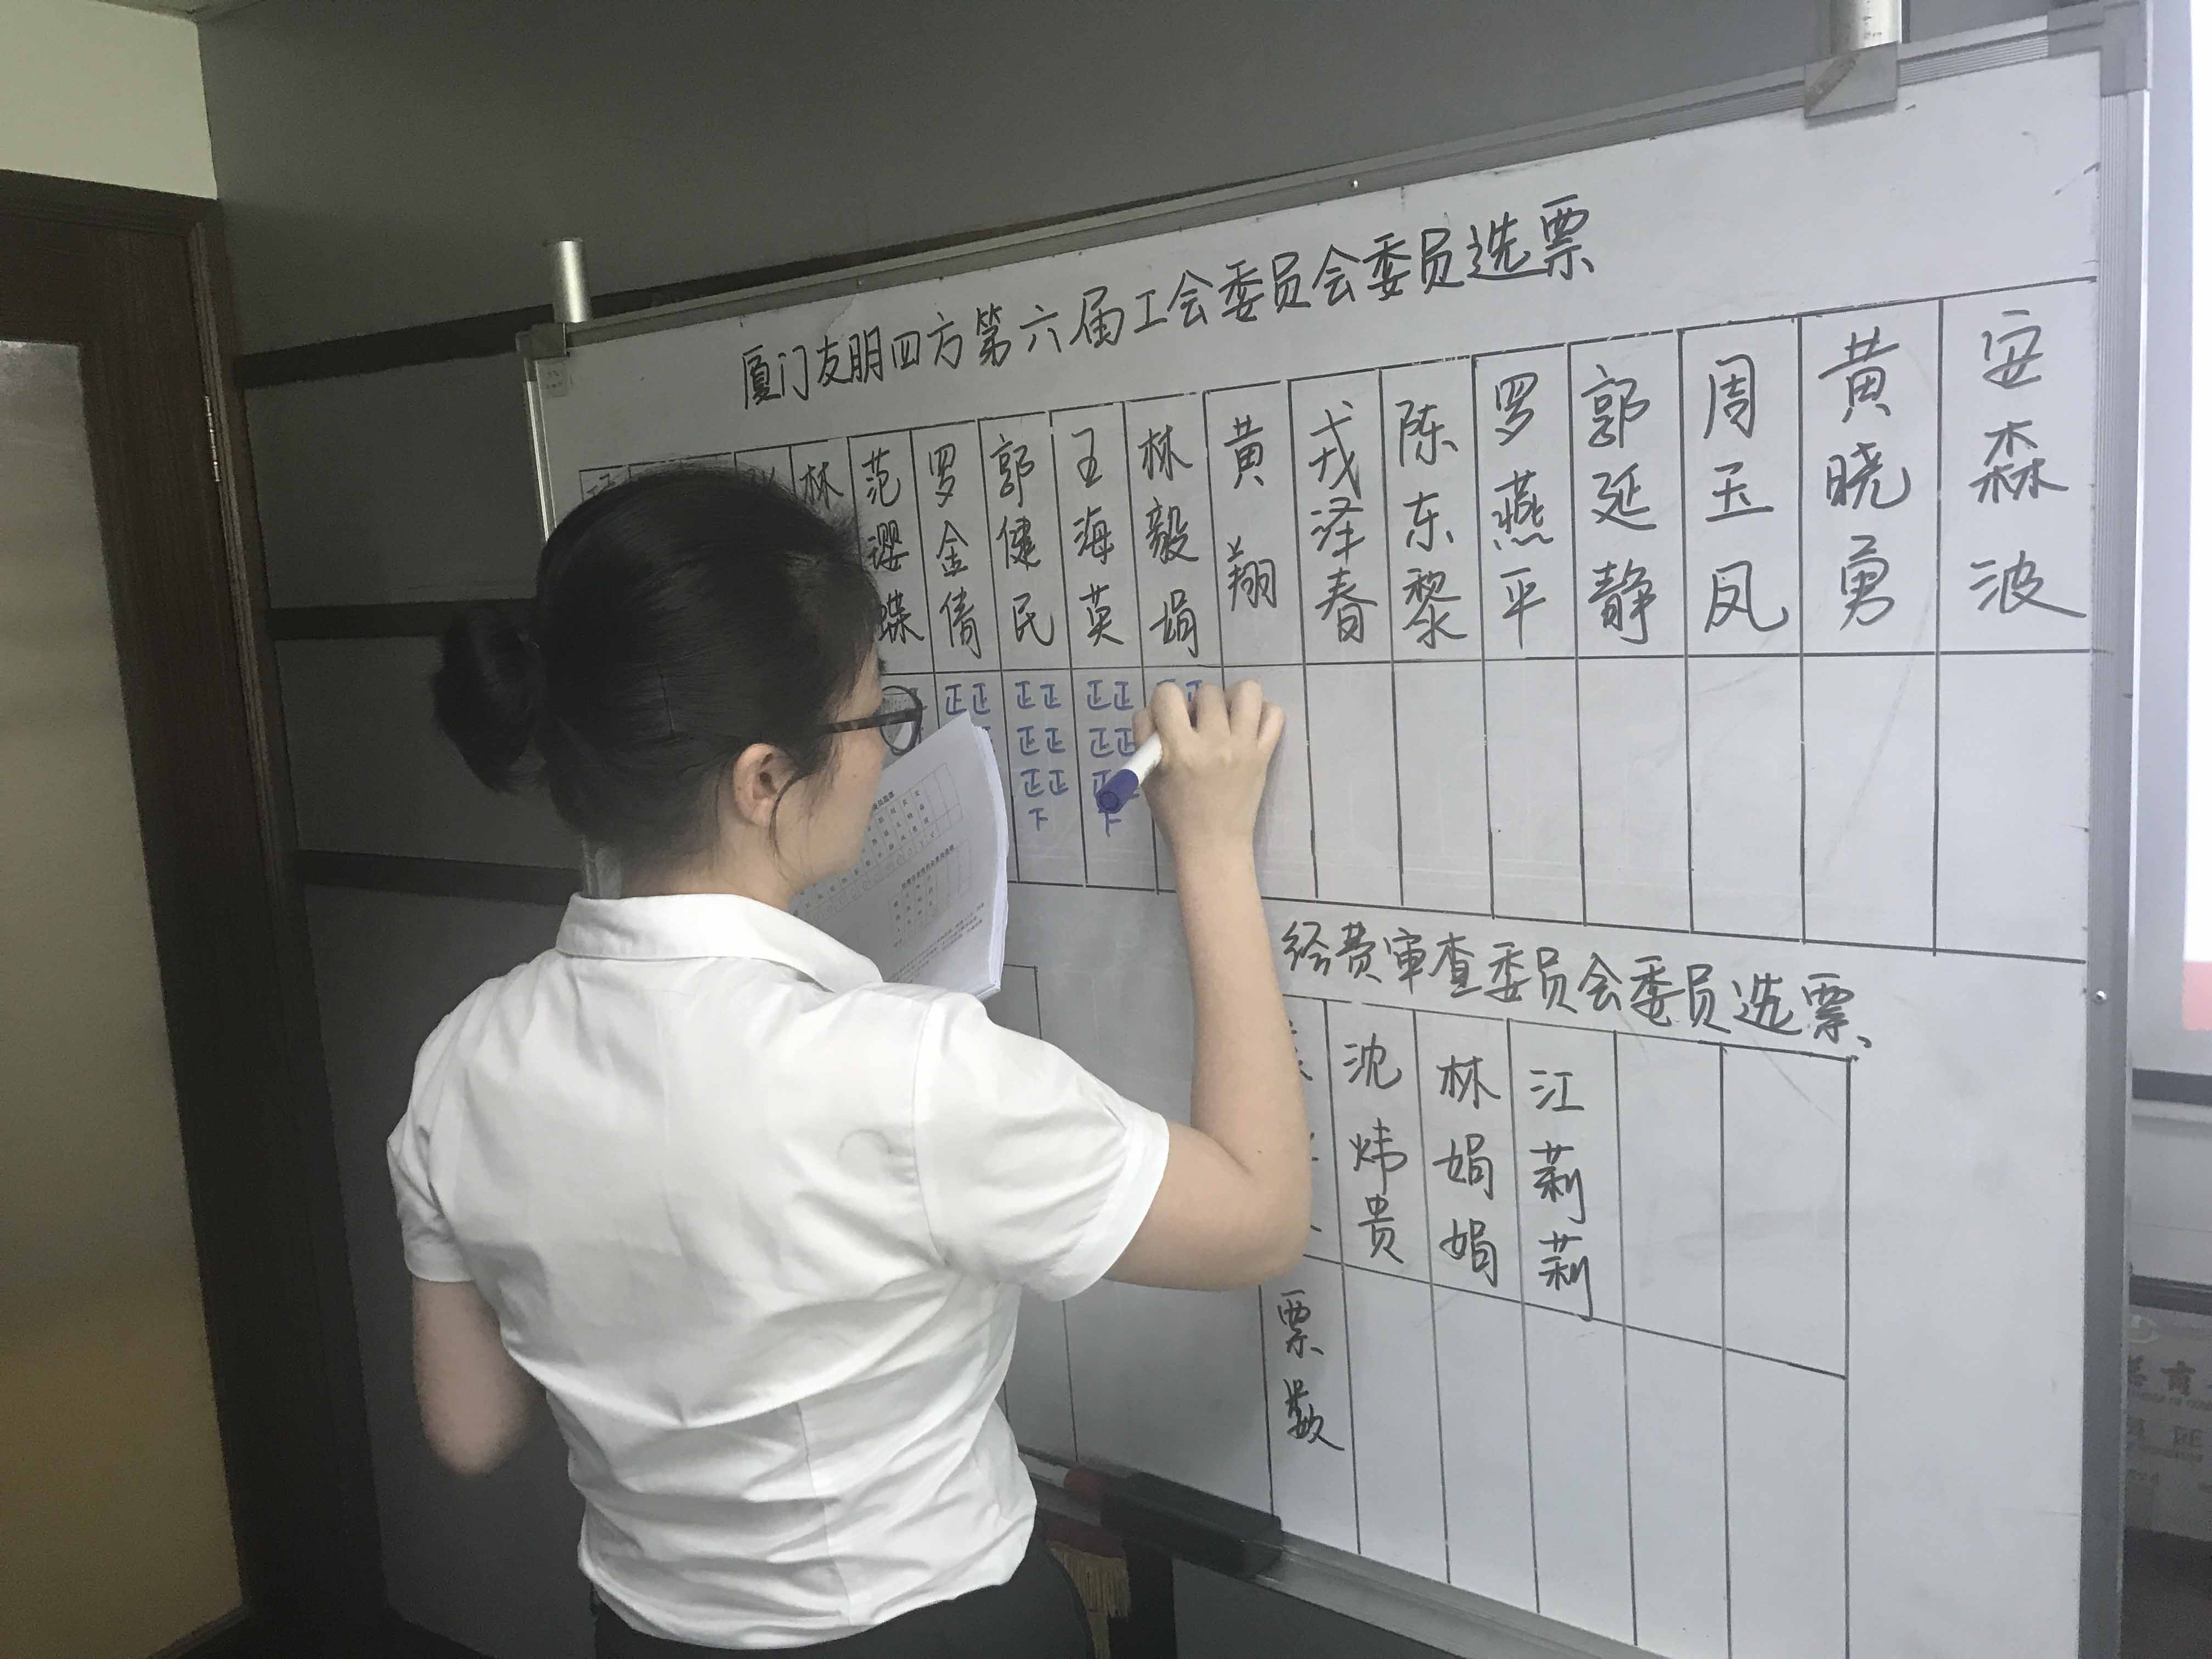 厦门友朋四方第六届工会委员会委员选票
林
范缨蝶
罗金倩
郭健民
王海英
林毅娟
黄翔
戎泽春
陈东黎
罗燕平
郭延静
周玉凤
黄晓勇
安森波
正正
正正
正正
正正
下
正正
正正
下
经费审查委员会委员选票
沈炜贵
林娟娟
江莉莉
票数